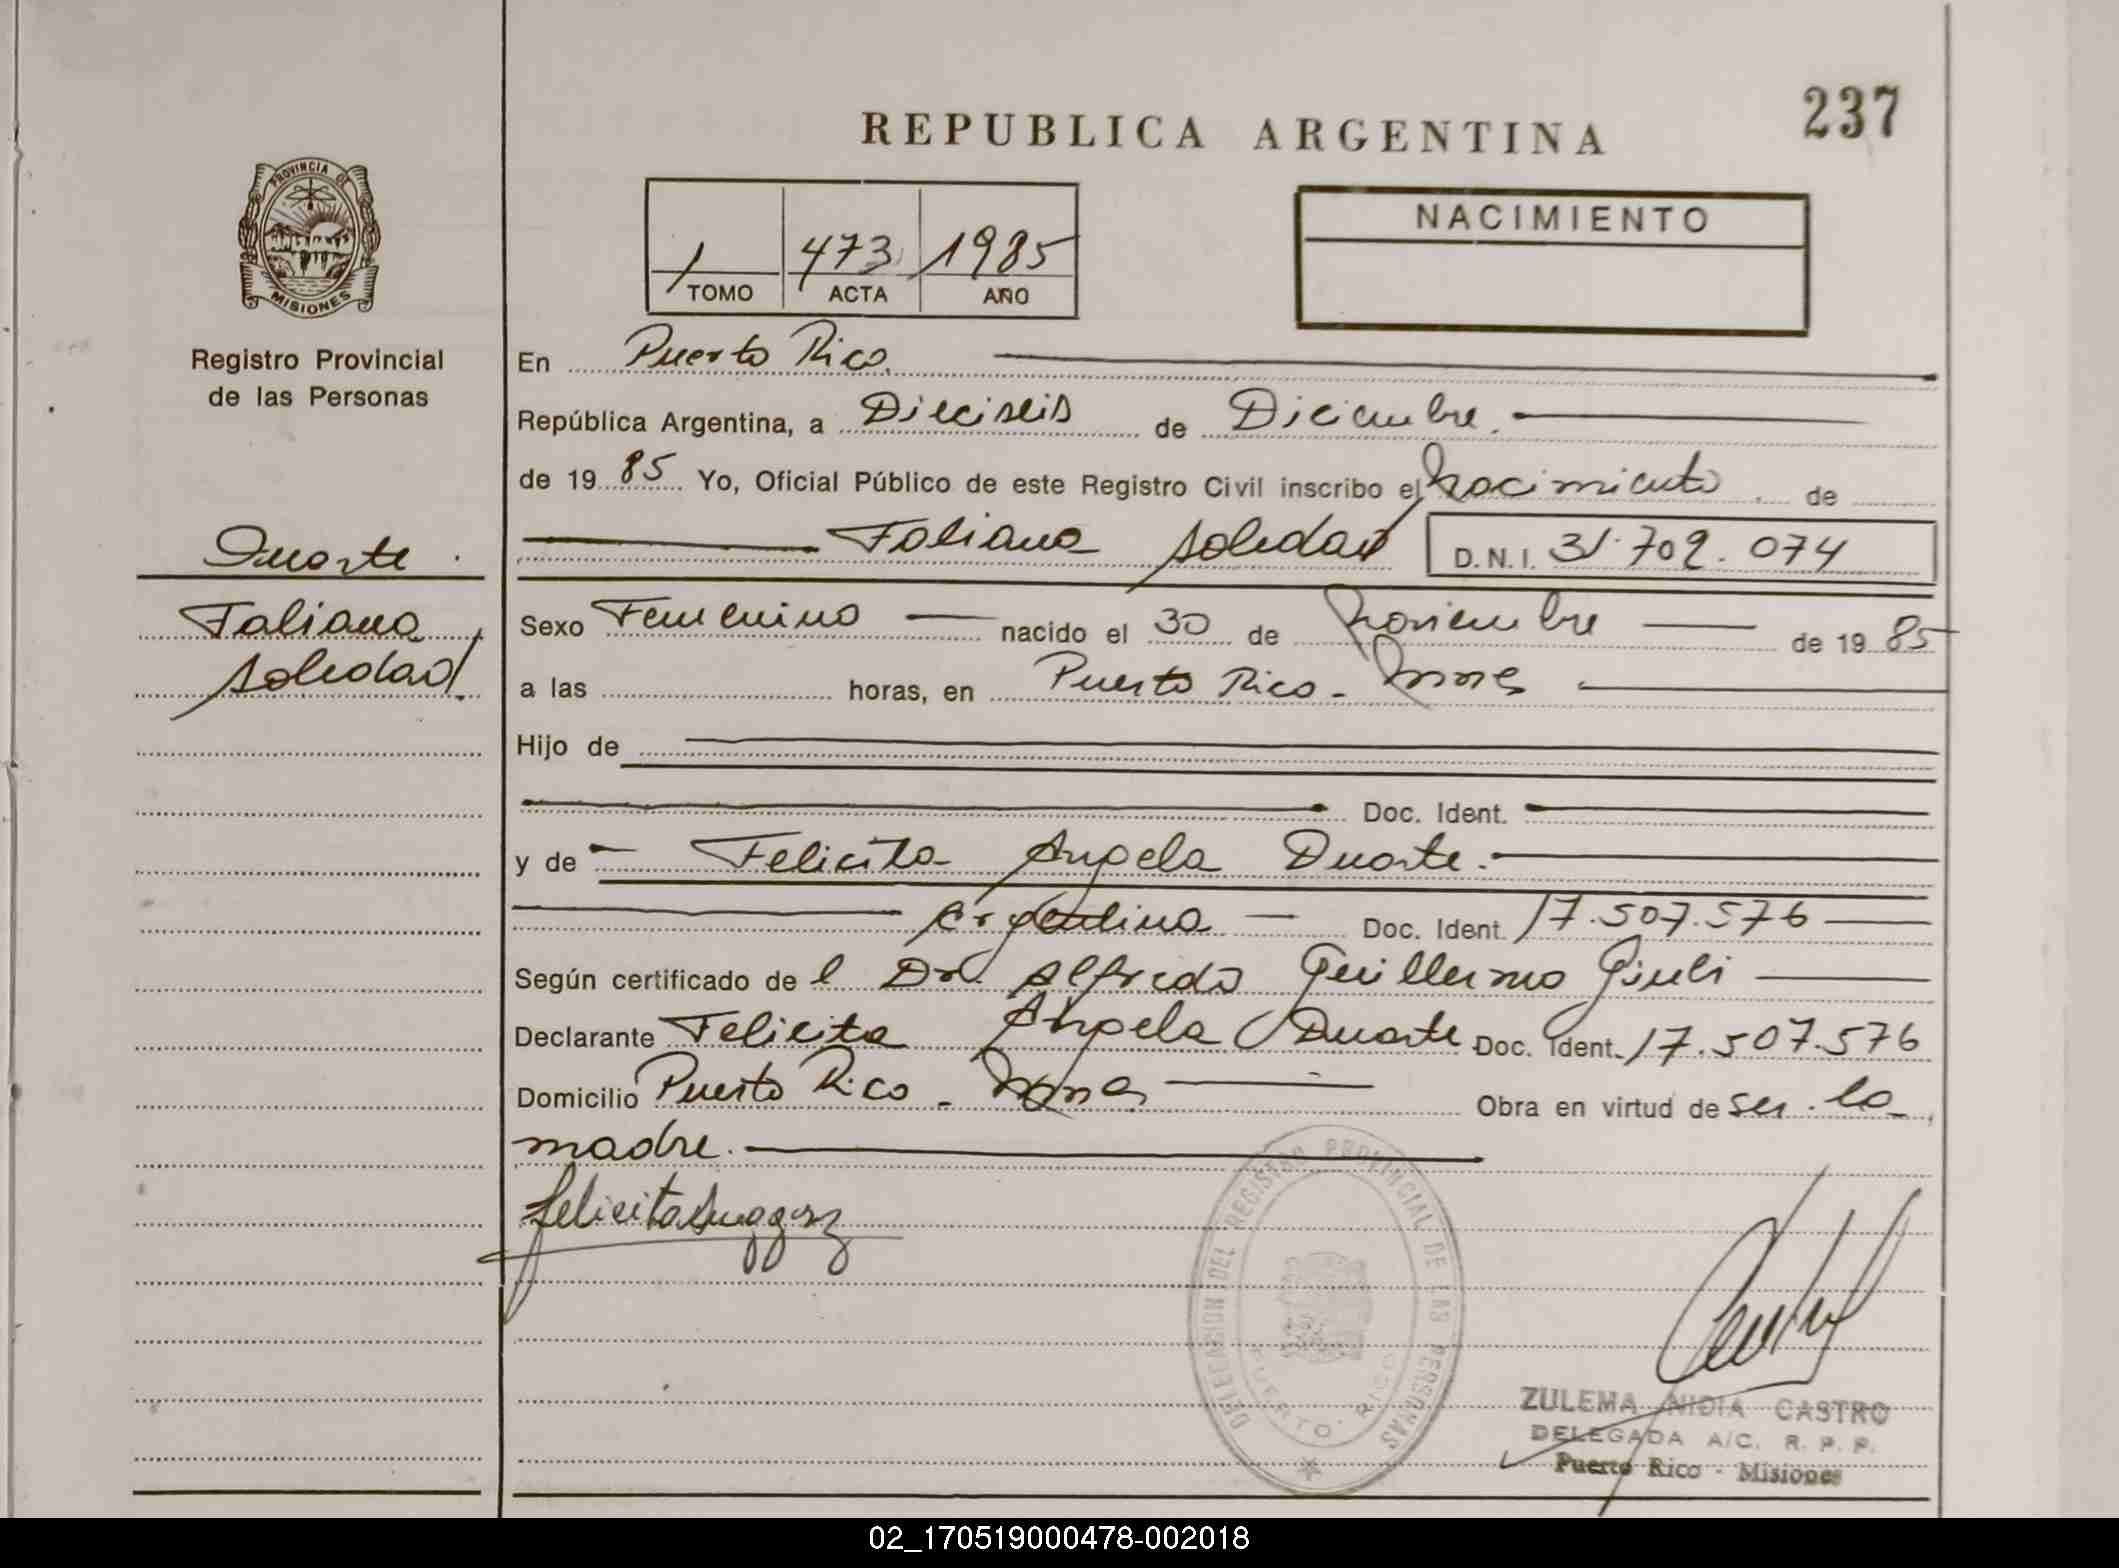 237
REPUBLICA ARGENTINA
PROVINCIA DE
MISIONES
Registro Provincial
de las Personas
1 473 1985
TOMO ACTA AÑO
NACIMIENTO
En Puerto Rico.
República Argentina, a Dieciseis de Diciembre.
de 19 85 Yo, Oficial Público de este Registro Civil inscribo el Nacimiento de
Duarte
Taliana Soledad D.N.I. 31.702.074
Taliana
Soledad
Sexo Femenino nacido el 30 de Noviembre de 19 85
a las horas, en Puerto Rico - Mnes
Hijo de
Doc. Ident.
y de Felicita Angela Duarte.
Argentina Doc. Ident. 17.507.576
Según certificado de l Dr. Alfredo Guillermo Giuli
Declarante Felicita Angela Duarte Doc. Ident. 17.507.576
Domicilio Puerto Rico - Mnes Obra en virtud de ser la
madre.
DELEGACION DEL REGISTRO PROVINCIAL DE LAS PERSONAS
PUERTO RICO
ZULEMA NIDIA CASTRO
DELEGADA A/C. R. P. P.
Puerto Rico - Misiones
02_170519000478-002018